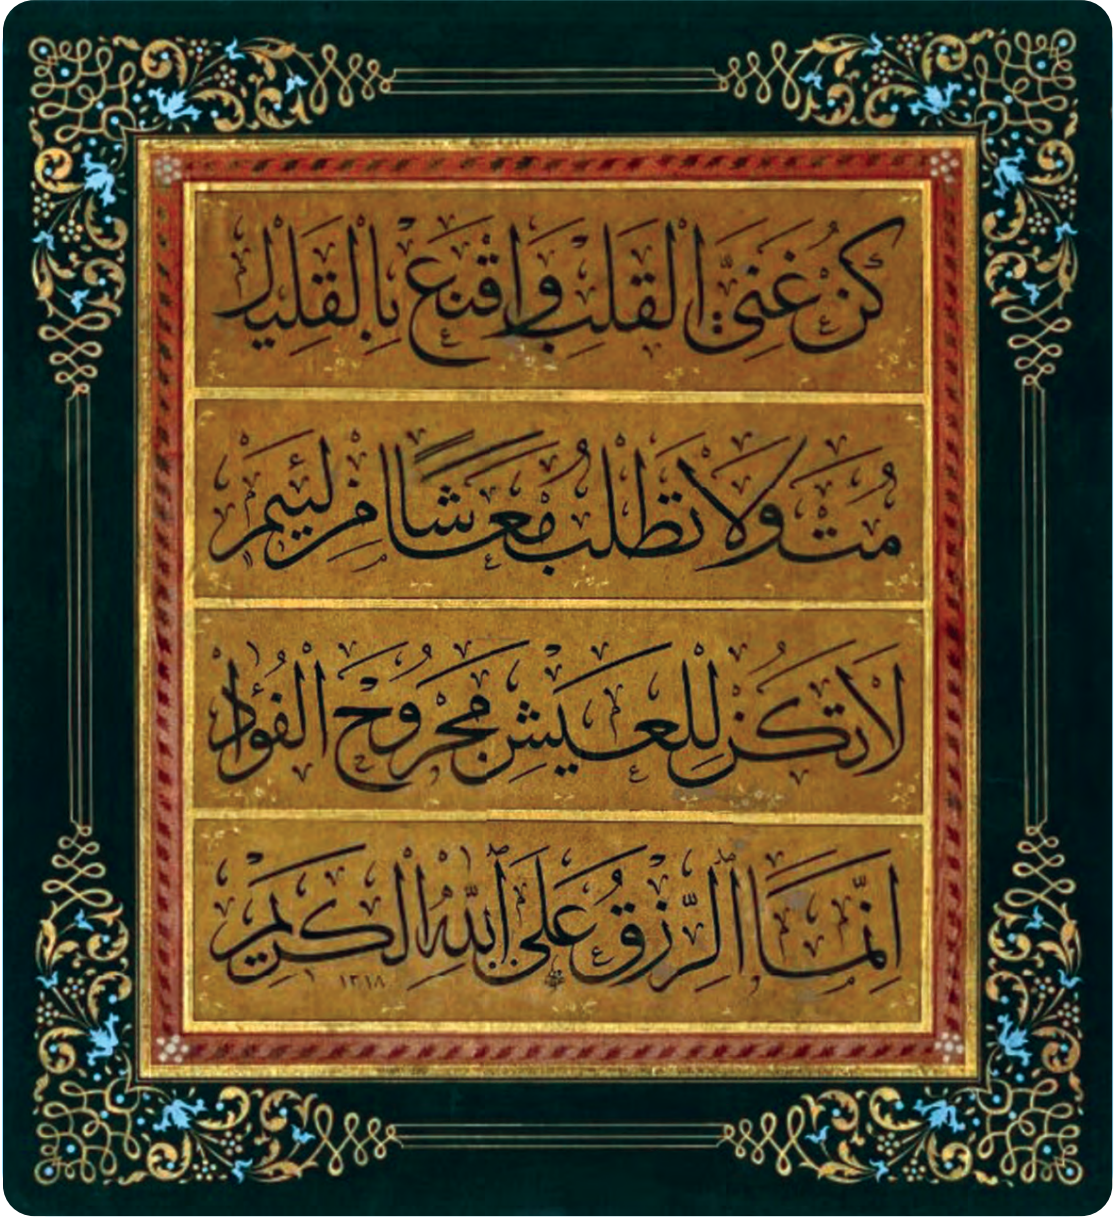 كُنْ غَنِيَّ الْقَلْبِ وَاقْنَعْ بِالْقَلِيلِ
مُتْ وَلَا تَطْلُبْ مَعَاشًا مِنْ لَئِيمْ
لَا تَكُنْ لِلْعَيْشِ مَجْرُوحَ الْفُؤَادْ
اِنَّمَا الرِّزْقُ عَلَى اللّٰهِ الْكَرِيمْ
١٣١٨